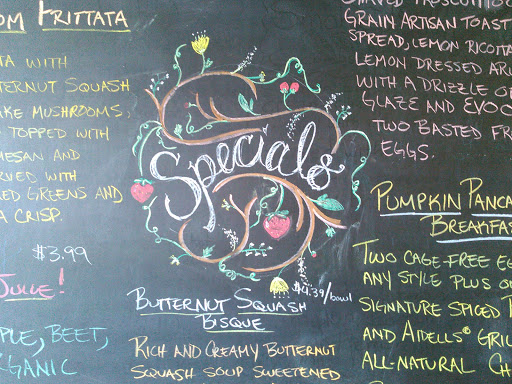 FRITTATA
WITH
SQUASH
MUSHROOMS,
TOPPED WITH
AND
WITH
GREENS AND
A CRISP.
$3.99
JUICE!
BEET,
Specials
$4.39/bowl
BUTTERNUT SQUASH
BISQUE
RICH AND CREAMY BUTTERNUT
SQUASH SOUP SWEETENED
GRAIN ARTISAN TOAST
SPREAD, LEMON RICOTTA
LEMON DRESSED
WITH A DRIZZLE OF
GLAZE AND EVOO
TWO BASTED
EGGS.
PUMPKIN
TWO CAGE-FREE
ANY STYLE PLUS
SIGNATURE SPICED
AND AIDELLS®
ALL-NATURAL